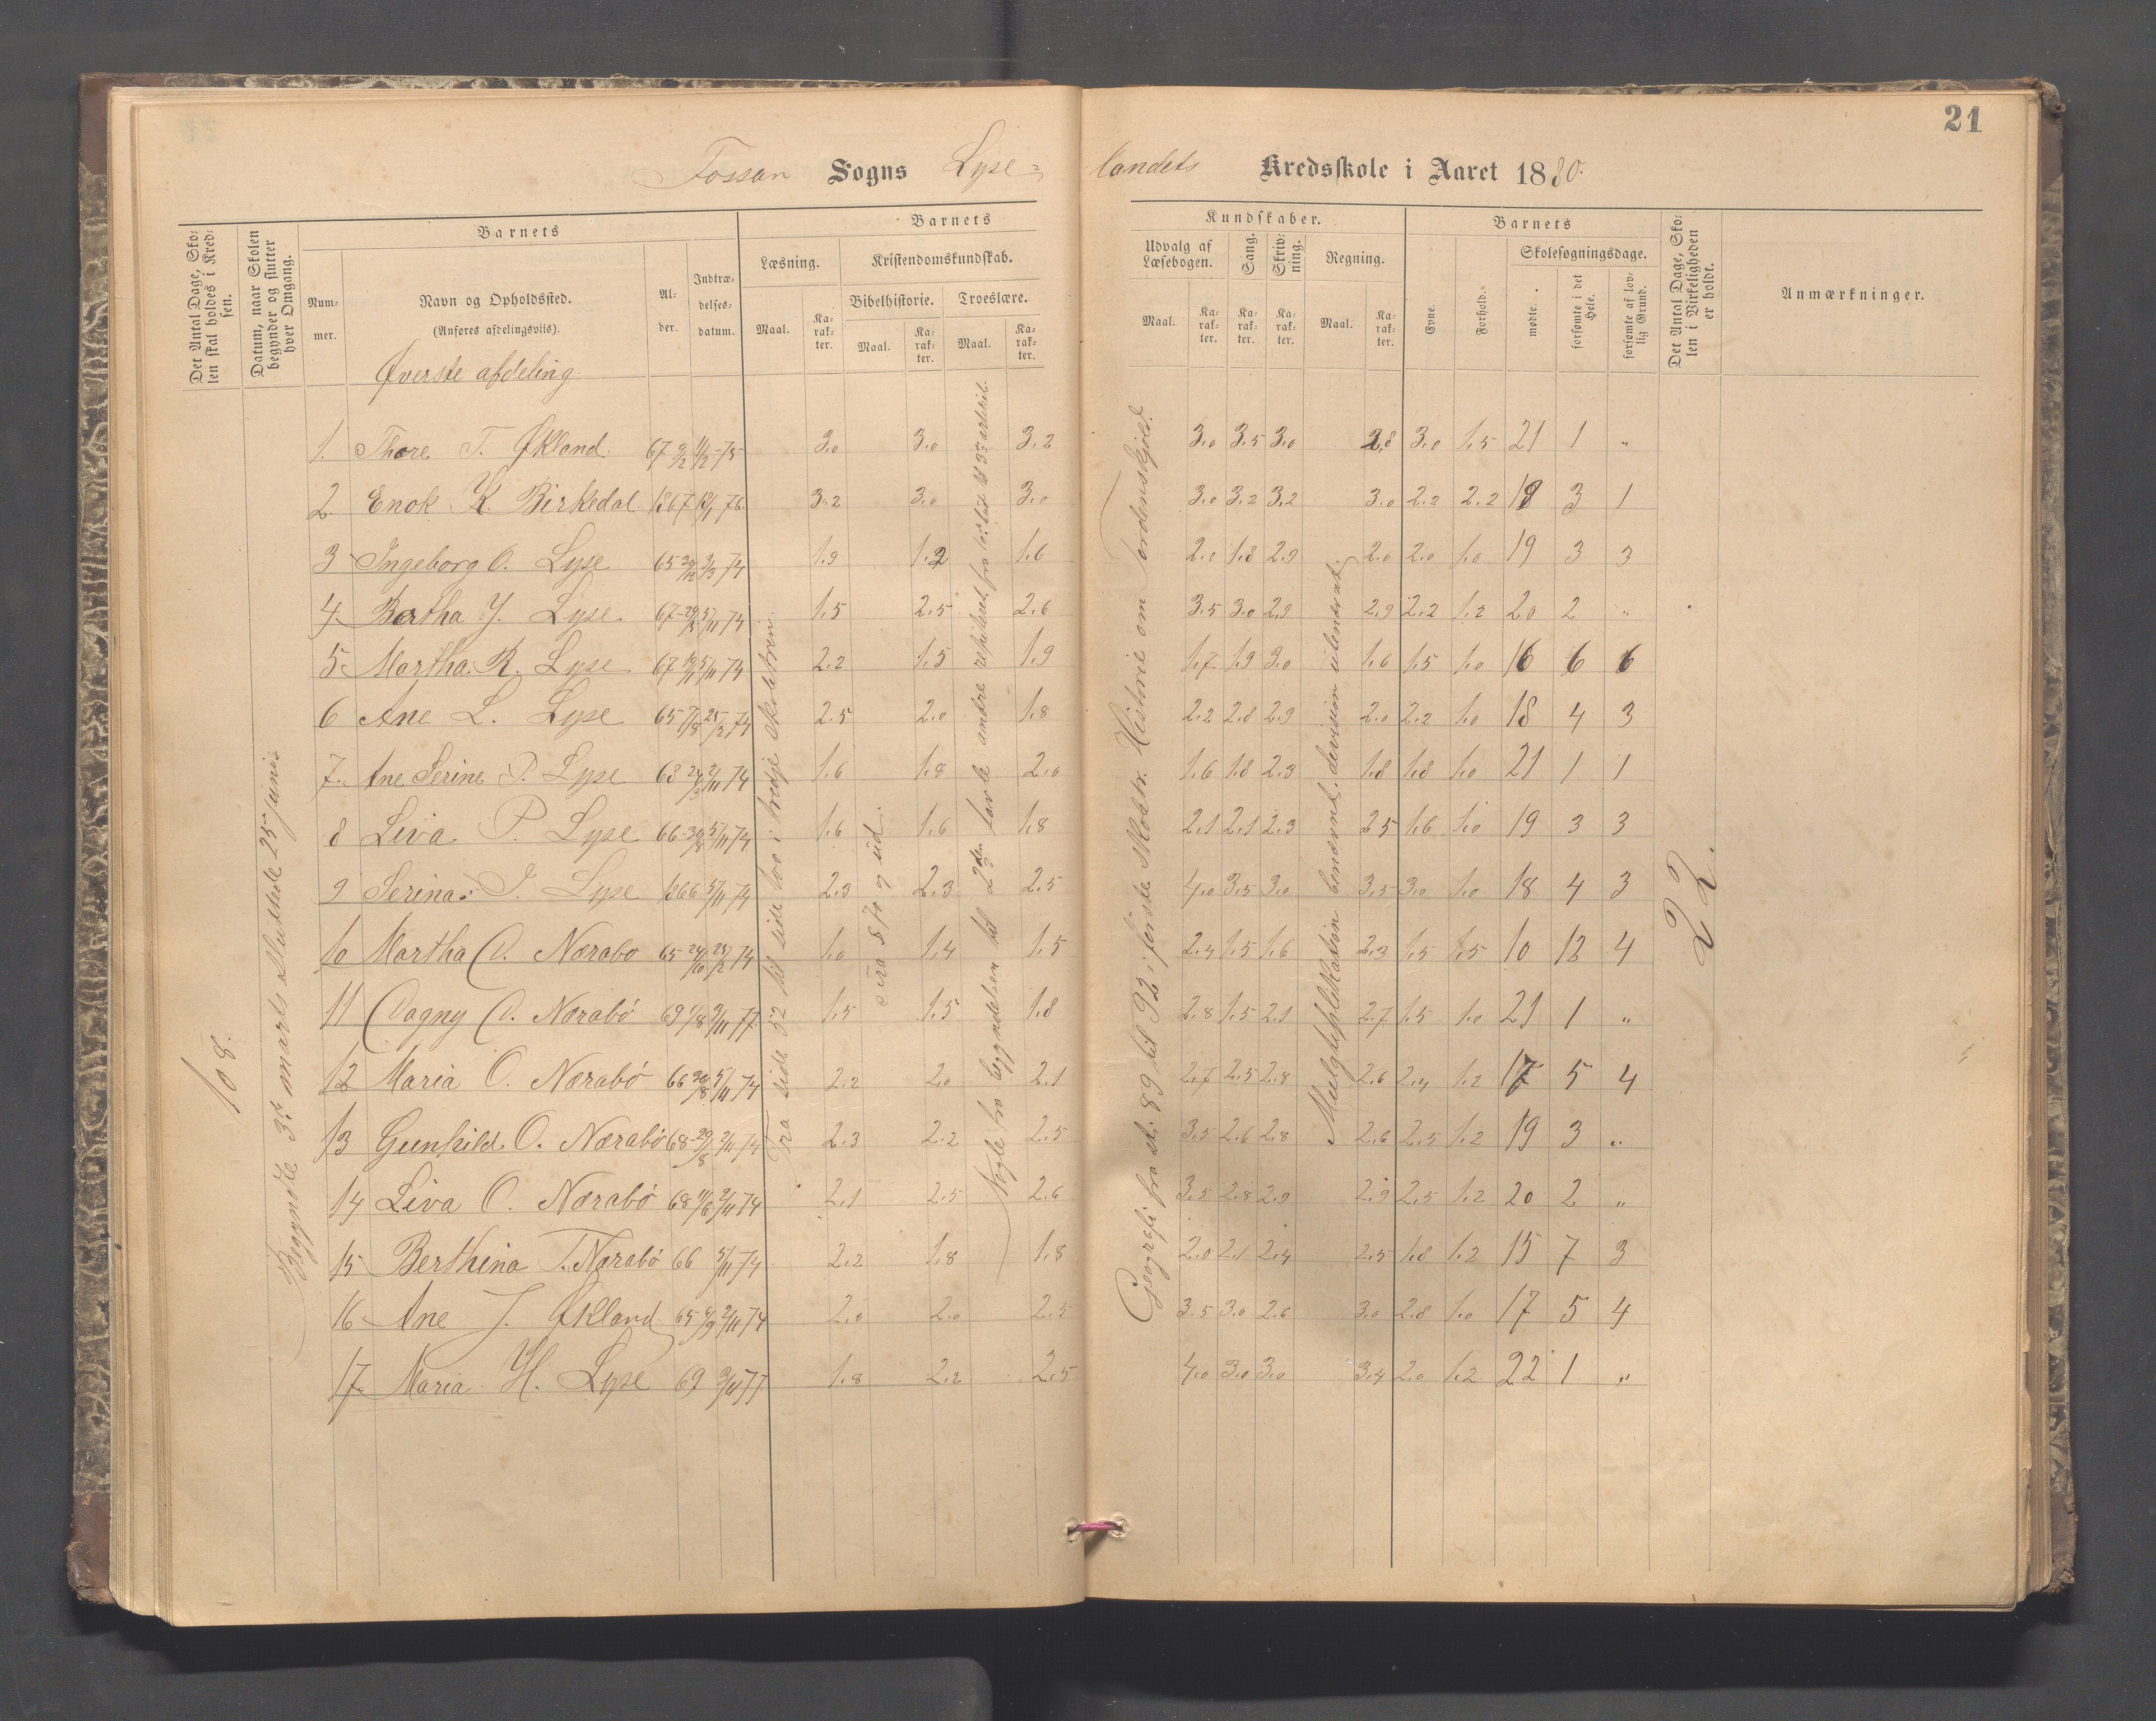 21
Fossan Sogns Lyse= landets Kredsskole i Aaret 1880.
Det Antal Dage, Skolen skal holdes i Kredsen.
Datum, naar Skolen begynder og slutter hver Omgang.
Barnets
Nummer.
Navn og Opholdssted.
(Anføres afdelingsviis).
Alder.
Indtrædelsesdatum.
Barnets Kundskaber.
Læsning.
Maal.
Karakter.
Kristendomskundskab.
Bibelhistorie.
Maal.
Karakter.
Troeslære.
Maal.
Karakter.
Udvalg af Læsebogen.
Maal.
Karakter.
Sang.
Karakter.
Skrivning.
Karakter.
Regning.
Maal.
Karakter.
Barnets
Evne.
Forhold.
Skolesøgningsdage.
mødte.
forsømte i det Hele.
forsømte af lovlig Grund.
Det Antal Dage, Skolen i Virkeligheden er holdt.
Anmærkninger.
Øverste afdeling
108.
Begyndte 3die marts sluttede 25 junis
Fra side 52 til side 100 i tredje skoletrin
Fra § 70 og ud.
begyndelsen til 2den
Geografi fra st. 89 til 92 i første Skoletr. Historie om Tordenskjold.
Mulgtiplikation benævnt. devision ubenævnt.
22.
1. Thore T. Økland. 67 9/2 11/2-75 3.0 3.0 3.2 3.0 3.5 3.0 2.8 3.0 1.5 21 1 "
2 Enok K. Birkedal 1867 18/1 76 3.2 3.0 3.0 3.0 3.2 3.2 3.0 2.2 2.2 18 3 1
3 Ingeborg O. Lyse 65 1.9 1.2 1.6 2.0 1.8 2.9 2.0 2.0 1.0 19 3 3
4 Bertha J. Lyse 67 5/11 74 1.5 2.5 2.6 3.5 3.0 2.9 2.9 2.2 1.2 20 2 "
5 Martha R. Lyse 67 5/11 74 2.2 1.5 1.9 1.7 1.9 3.0 1.6 1.5 1.0 16 6 6
6 Ane L. Lyse 65 7/8 25/2 74 2.5 2.0 1.8 2.2 2.8 2.9 2.0 2.2 1.0 18 4 3
7. Ane Serine P. Lyse 68 2/11 74 1.6 1.8 2.0 1.6 1.8 2.3 1.8 1.8 1.0 21 1 1
8 Liva P. Lyse 66 5/11 74 1.6 1.6 1.8 2.1 2.1 2.3 2.5 1.6 1.0 19 3 3
9 Serina J. Lyse 1866 5/11 74 2.3 2.3 2.5 4.0 3.5 3.0 3.5 3.0 1.0 18 4 3
10 Martha O. Nærabø 65 24/10 25/2 74 1.0 1.4 1.5 2.4 1.5 1.6 2.3 1.5 1.5 10 12 4
11 Dagny O. Nærabö 69 3/11 77 1.5 1.5 1.8 2.8 1.5 2.1 2.7 1.5 1.0 21 1 "
12 Maria O. Nærabö 66 5/11 74 2.2 2.0 2.1 2.7 2.5 2.8 2.6 2.4 1.2 17 5 4
13 Gunhild O. Nærabö 68 29/8 2/11 74 2.3 2.2 2.5 3.5 2.6 2.8 2.6 2.5 1.2 19 3 "
14 Liva O. Nærabö 68 2/11 74 2.1 2.5 2.6 3.5 2.8 2.9 2.9 2.5 1.2 20 2 "
15 Berthina T. Nærabö 66 5/11 74 2.2 1.8 1.8 2.0 2.1 2.4 2.5 1.8 1.2 15 7 3
16 Ane J. Økland 65 2/11 74 2.0 2.0 2.5 3.5 3.0 2.6 3.0 2.8 1.0 17 5 4
17 Maria H. Lyse 69 3/11 77 1.8 2.2 2.5 4.0 3.0 3.0 3.4 2.0 1.2 22 1 "